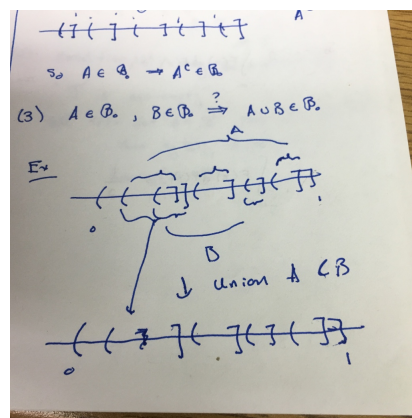 A
( ] ( ] ( ] ( ] ( ]
So A ∈ B₀ → Aᶜ ∈ B₀
(3) A ∈ B₀ , B ∈ B₀ ⇒? A ∪ B ∈ B₀
A
Ex
0 1
B
↓ Union A & B
0 1